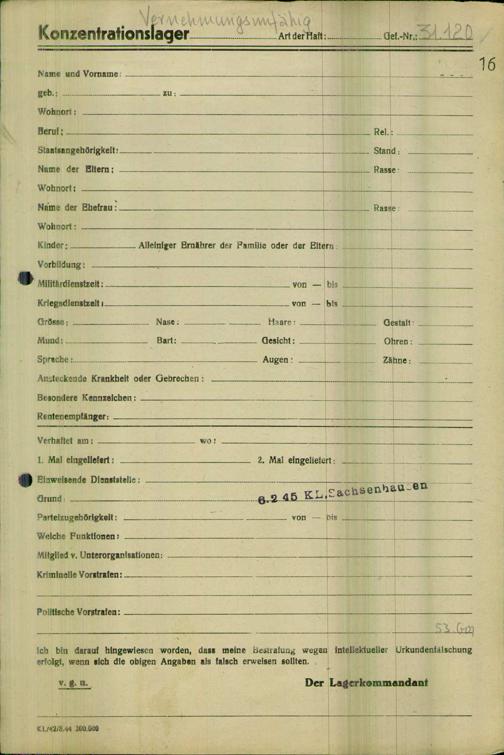 Vernehmungsunfähig
Konzentrationslager Art der Haft: Gef.-Nr.: 31120
16
Name und Vorname:
geb.: zu:
Wohnort:
Beruf: Rel.:
Staatsangehörigkeit: Stand:
Name der Eltern: Rasse:
Wohnort:
Name der Ehefrau: Rasse:
Wohnort:
Kinder: Alleiniger Ernährer der Familie oder der Eltern:
Vorbildung:
Militärdienstzeit: von — bis
Kriegsdienstzeit: von — bis
Grösse: Nase: Haare: Gestalt:
Mund: Bart: Gesicht: Ohren:
Sprache: Augen: Zähne:
Ansteckende Krankheit oder Gebrechen:
Besondere Kennzeichen:
Rentenempfänger:
Verhaftet am: wo:
1. Mal eingeliefert: 2. Mal eingeliefert:
Einweisende Dienststelle:
Grund: 6.2.45 KL.Sachsenhausen
Parteizugehörigkeit: von — bis
Welche Funktionen:
Mitglied v. Unterorganisationen:
Kriminelle Vorstrafen:
Politische Vorstrafen:
53
Ich bin darauf hingewiesen worden, dass meine Bestrafung wegen intellektueller Urkundenfälschung
erfolgt, wenn sich die obigen Angaben als falsch erweisen sollten.
v. g. u. Der Lagerkommandant
KL/42/8.44 500.000